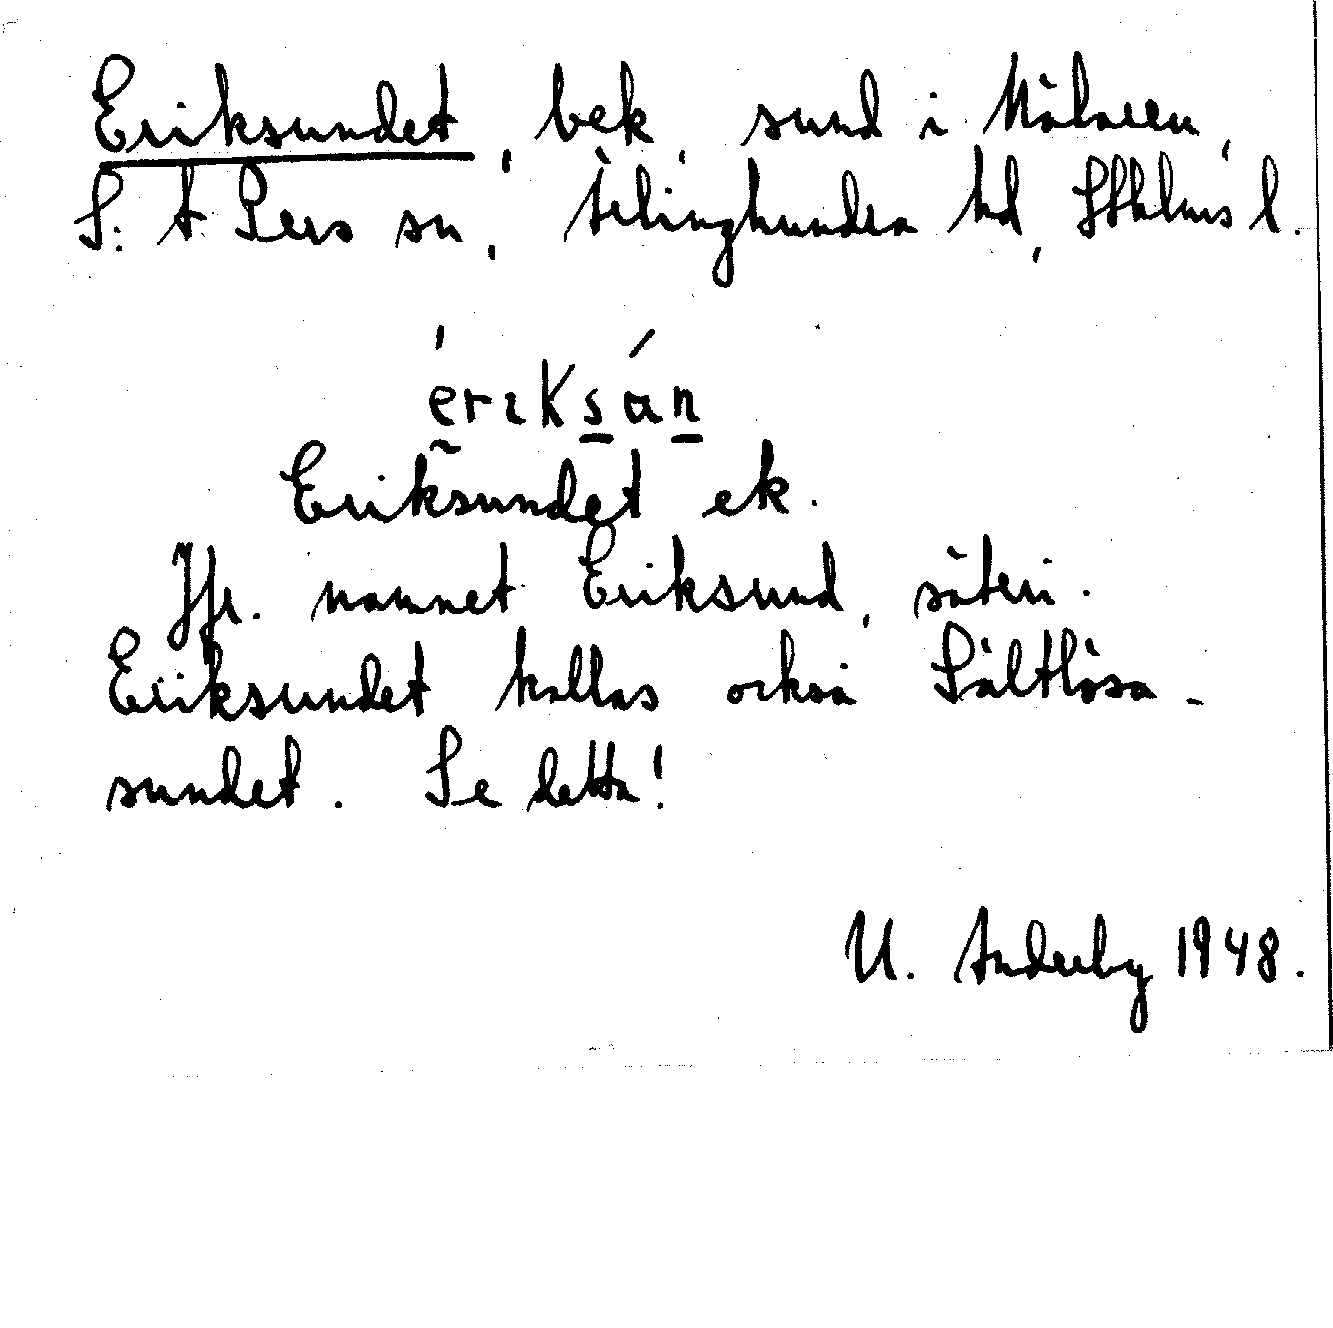 Eriksundet, bek. sund i Mälaren,
S:t Pers sn, Ärlinghundra hd, Sthlms l.
ériksán
Eriksundet ek.
Jfr. namnet Eriksund, säteri.
Eriksundet kallas också Sältlösa-
sundet. Se detta!
U. Anderby 1948.